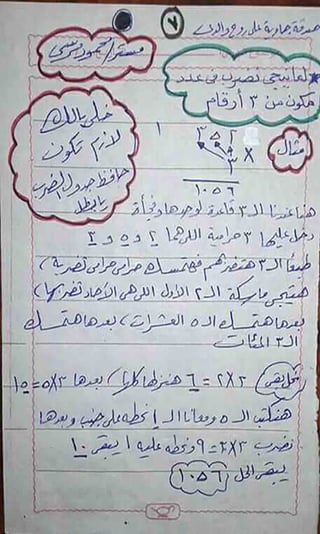 صدقة جارية على روح والدى
٧
مستر / محمود مرسى
لما تيجى تضرب فى عدد
مكون من ٣ أرقام
خلى بالك
لازم تكون
حافظ جدول الضرب
يا بطل
مثال
١
٣ ٥ ٢
٣ ×
١٠٥٦
هنا عندنا الـ ٣ قاعدة لوحدها وفجأة
دخل عليها ٣ حرامية اللى هما ٢ و ٥ و ٣
طبعًا الـ ٣ هتضربهم فهتمسك حرامى حرامى تضربه
هتيجى ماسكة الـ ٢ الأول اللى هى الآحاد تضربها
بعدها هتمسك الـ ٥ العشرات، بعدها هتمسك
الـ ٣ المئات
٣×٢ = ٦ هننزلها كلها، بعدها ٣×٥ = ١٥
هنكتب الـ ٥ ومعانا الـ ١ نحطه على جنب وبعدها
نضرب ٣×٣ = ٩ ونحطه عليه ١ يبقى ١٠
يبقى الحل ١٠٥٦